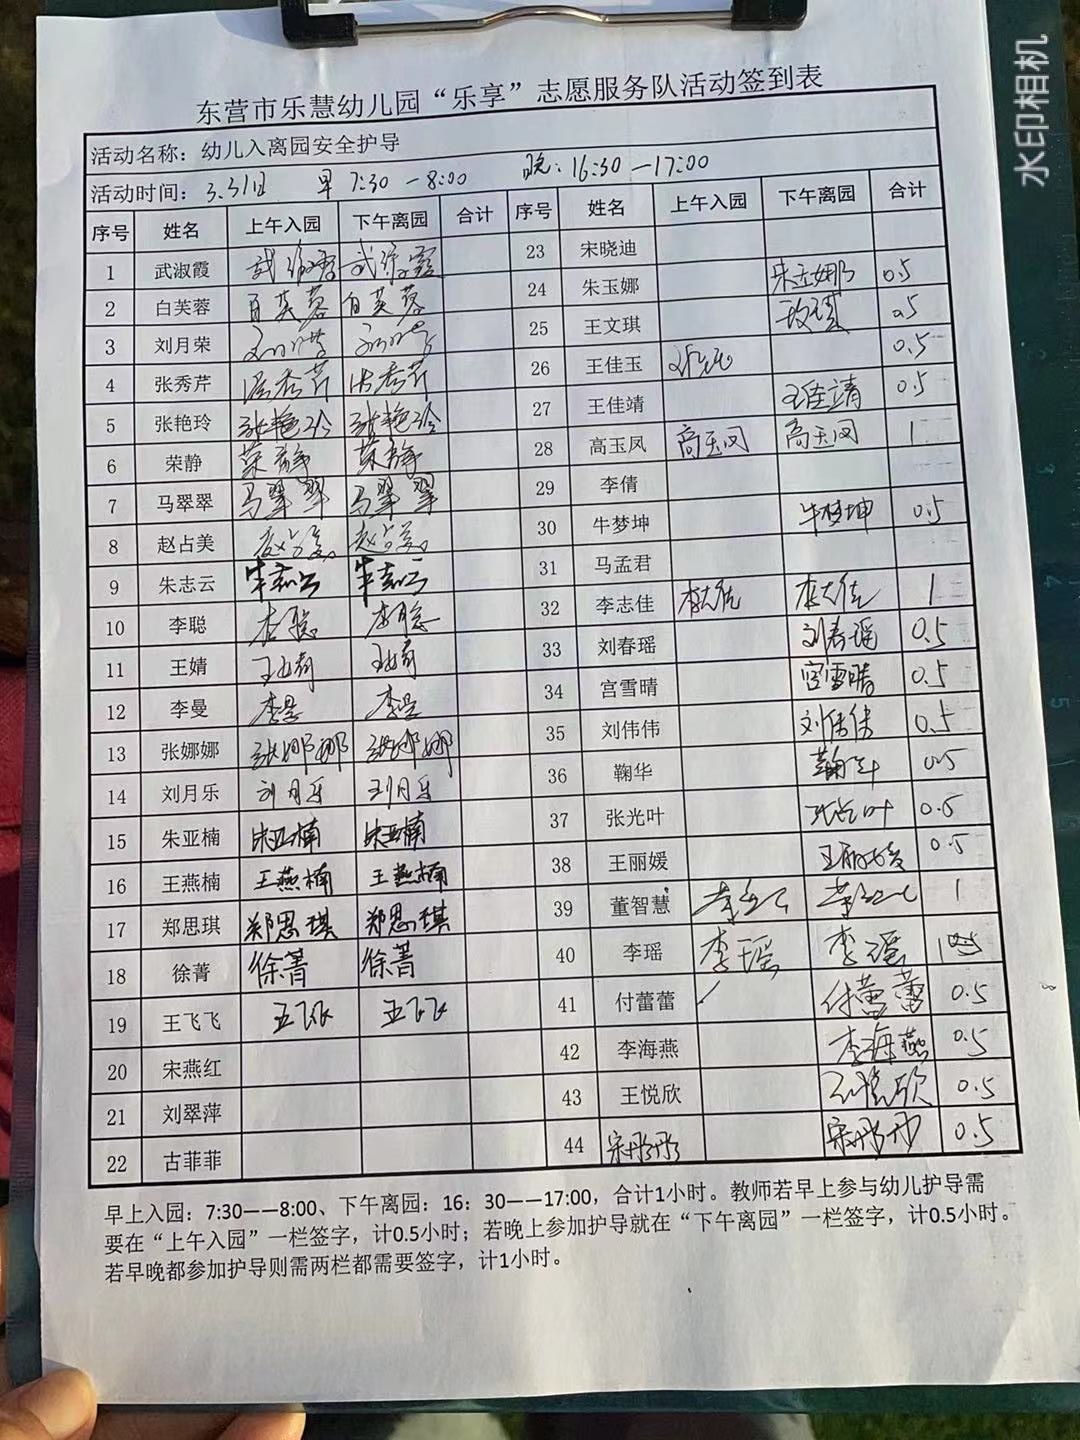 水印相机
东营市乐慧幼儿园“乐享”志愿服务队活动签到表
活动名称：幼儿入离园安全护导
活动时间：3.31日 早 7:30—8:00 晚：16:30—17:00
序号 姓名 上午入园 下午离园 合计 序号 姓名 上午入园 下午离园 合计
1 武淑霞 武淑霞 武淑霞 23 宋晓迪
2 白芙蓉 白芙蓉 白芙蓉 24 朱玉娜 朱玉娜 0.5
3 刘月荣 25 王文琪 0.5
4 张秀芹 张秀芹 张秀芹 26 王佳玉 0.5
5 张艳玲 张艳玲 张艳玲 27 王佳靖 王佳靖 0.5
6 荣静 荣静 荣静 28 高玉凤 高玉凤 高玉凤 1
7 马翠翠 马翠翠 马翠翠 29 李倩
8 赵占美 赵占美 赵占美 30 牛梦坤 牛梦坤 0.5
9 朱志云 朱志云 朱志云 31 马孟君
10 李聪 李聪 李聪 32 李志佳 李志佳 李志佳 1
11 王婧 王婧 王婧 33 刘春瑶 刘春瑶 0.5
12 李曼 李曼 李曼 34 宫雪晴 宫雪晴 0.5
13 张娜娜 张娜娜 张娜娜 35 刘伟伟 刘伟伟 0.5
14 刘月乐 刘月乐 刘月乐 36 鞠华 鞠华 0.5
15 朱亚楠 朱亚楠 朱亚楠 37 张光叶 张光叶 0.5
16 王燕楠 王燕楠 王燕楠 38 王丽媛 王丽媛 0.5
17 郑思琪 郑思琪 郑思琪 39 董智慧 1
18 徐菁 徐菁 徐菁 40 李瑶 李瑶 李瑶 1
19 王飞飞 王飞飞 王飞飞 41 付蕾蕾 付蕾蕾 0.5
20 宋燕红 42 李海燕 李海燕 0.5
21 刘翠萍 43 王悦欣 王悦欣 0.5
22 古菲菲 44 宋彤彤 宋彤彤 0.5
早上入园：7:30——8:00、下午离园：16：30——17:00，合计1小时。教师若早上参与幼儿护导需
要在“上午入园”一栏签字，计0.5小时；若晚上参加护导就在“下午离园”一栏签字，计0.5小时。
若早晚都参加护导则需两栏都需要签字，计1小时。